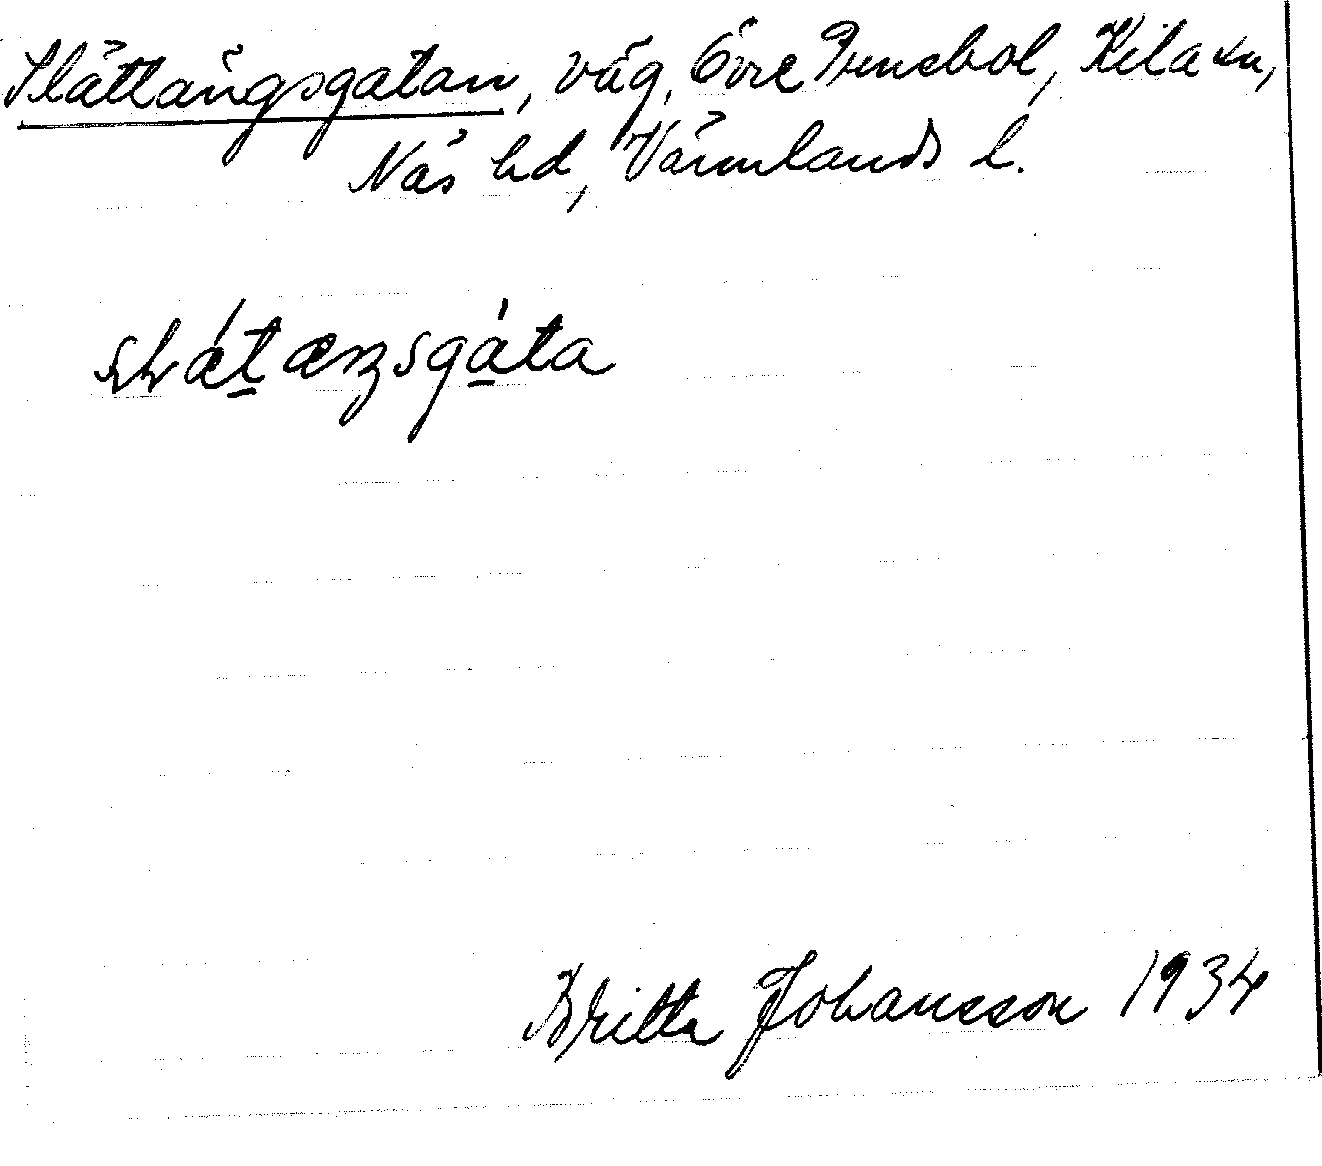 Slättängsgatan, väg, Övre Prinsbol, Kila sn,
Näs hd, Värmlands l.
slæ̀tæŋsgàta
Britta Johansson 1934